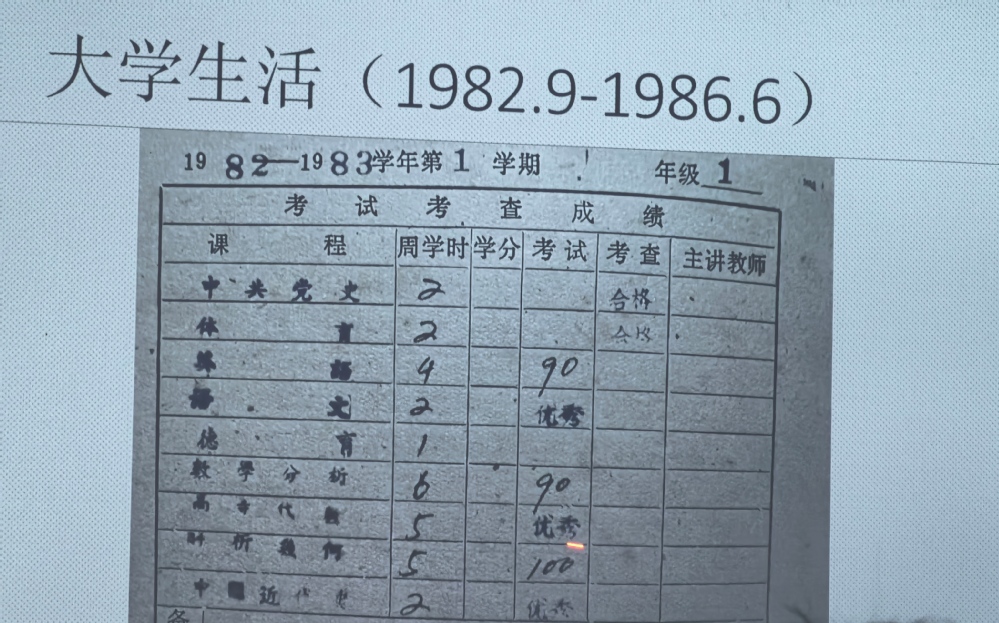 大学生活（1982.9-1986.6）
19 82—1983学年第1学期 年级 1
考试考查成绩
课程 周学时 学分 考试 考查 主讲教师
中共党史 2 合格
体育 2 合格
英语 4 90
语文 2 优秀
德育 1
数學分析 6 90
高等代数 5 优秀
解析幾何 5 100
中国近代史 2 优秀